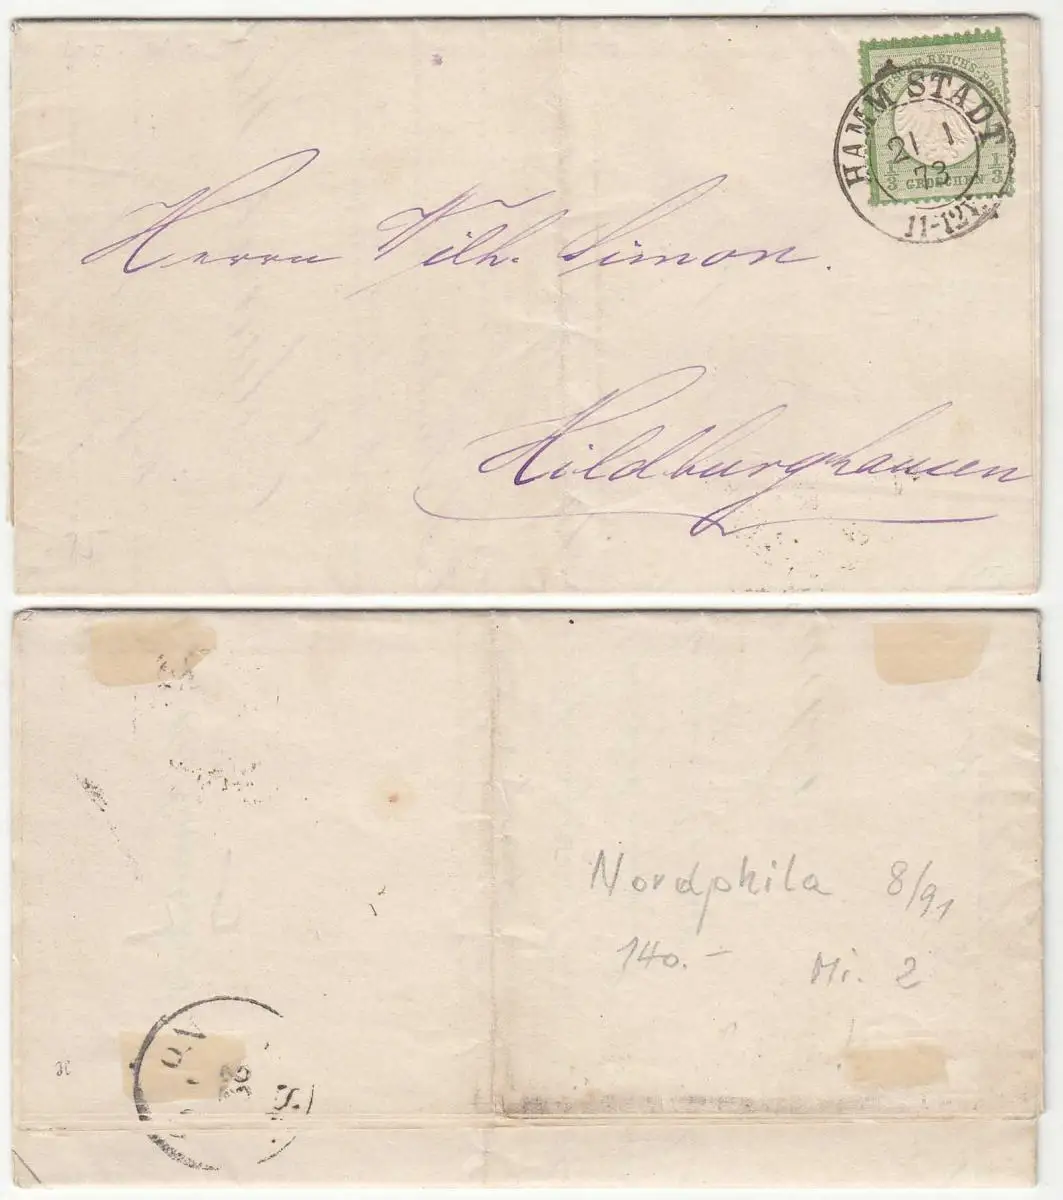 DEUTSCHE REICHS-POST
1/3 GROSCHEN 1/3
HAMM STADT
21 1
73
11-12V.
Herrn Wilh. Simon.
Hildburghausen
Nordphila 8/91
140.- Mi. 2